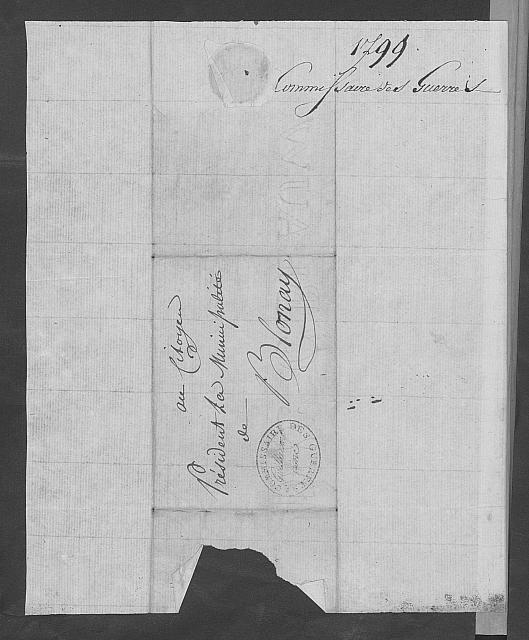 1799
Commissaire des Guerres
au Citoyen
Président La Municipalité
de
Blonay
COMMISSAIRE DES GUERRES